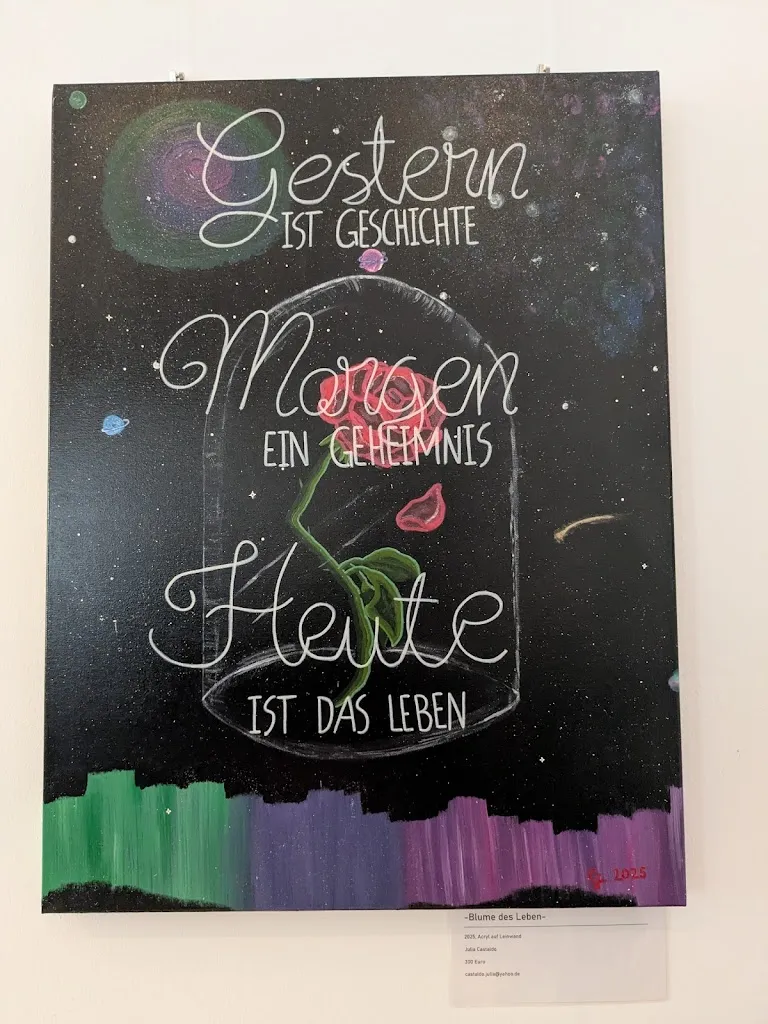 Gestern
IST GESCHICHTE
Morgen
EIN GEHEIMNIS
Heute
IST DAS LEBEN
2025
-Blume des Leben-
2025, Acryl auf Leinwand
Julia Castaldo
330 Euro
castaldo.julia@yahoo.de